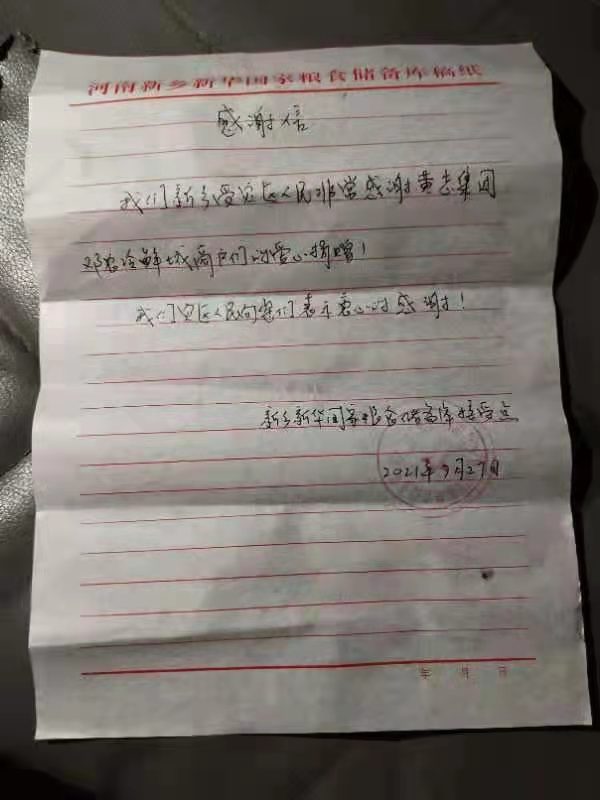 河南新乡新华国家粮食储备库稿纸
感谢信
我们新乡受灾区人民非常感谢黄志集团
邓农冷鲜城商户们的爱心捐赠！
我们灾区人民向您们表示衷心的感谢！
新乡新华国家粮食储备库接受点
2021年9月27日
年 月 日